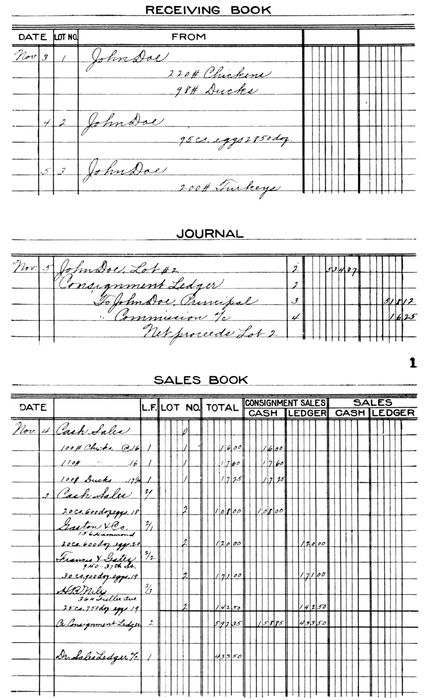 RECEIVING BOOK
DATE LOT NO. FROM
Nov 3 1 John Doe
220# Chickens
98# Ducks
4 2 John Doe
95 cs. eggs 2850 doz
5 3 John Doe
200# Turkeys
JOURNAL
Nov 5 John Doe, Lot #2 2 53437
Consignment Ledger 2
To John Doe, Principal 3 51812
" Commission a/c 4 1625
Net proceeds Lot 2
1
SALES BOOK
DATE L.F. LOT NO. TOTAL CONSIGNMENT SALES CASH LEDGER SALES CASH LEDGER
Nov 4 Cash Sales
100# Chicks. @16 1 1 1600 1600
110# " 16 1 1 1760 1760
100# Ducks 17¼ 1 1 1725 1725
Cash Sales
20 cs. 600 doz eggs. 18 2 10800 10800
Gaston & Co.
156 Hammond
20 cs. 600 doz. eggs. 20 2 12000 12000
Francis & Gates 2/2
940-37th St.
30 cs. 900 doz eggs. 19 2 17100 17100
2/3
25 cs. 750 doz eggs 19 2 14250 14250
Cr. Consignment Ledger 2 59235 15885 43350
Dr. Sales Ledger a/c 1 43350